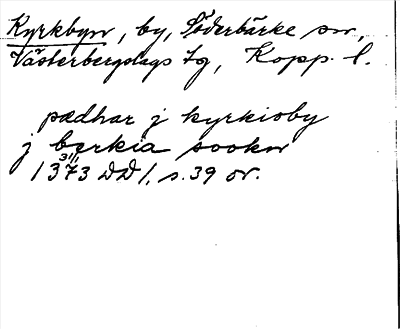 Kyrkbyn, by, Söderbärke sn,
Västerbergslags tg, Kopp. l.
pædhar j kyrkioby
j bærkia sookn
31/1
1373 DD 1, s. 39 or.